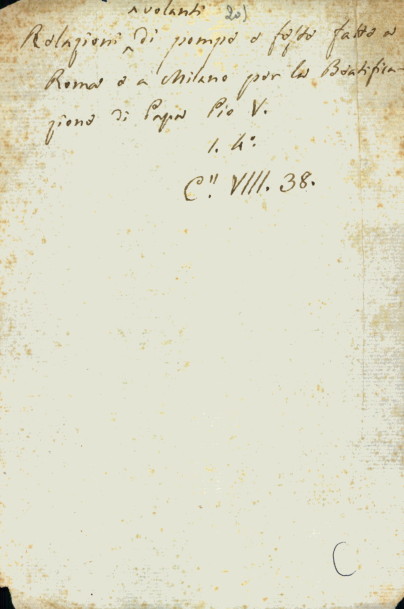 volanti 20)
Relazioni ^ di pompe e feste fatte a
Roma e a Milano per la Beatifica-
zione di Papa Pio V.
1. 4º.
C" VIII. 38.
C